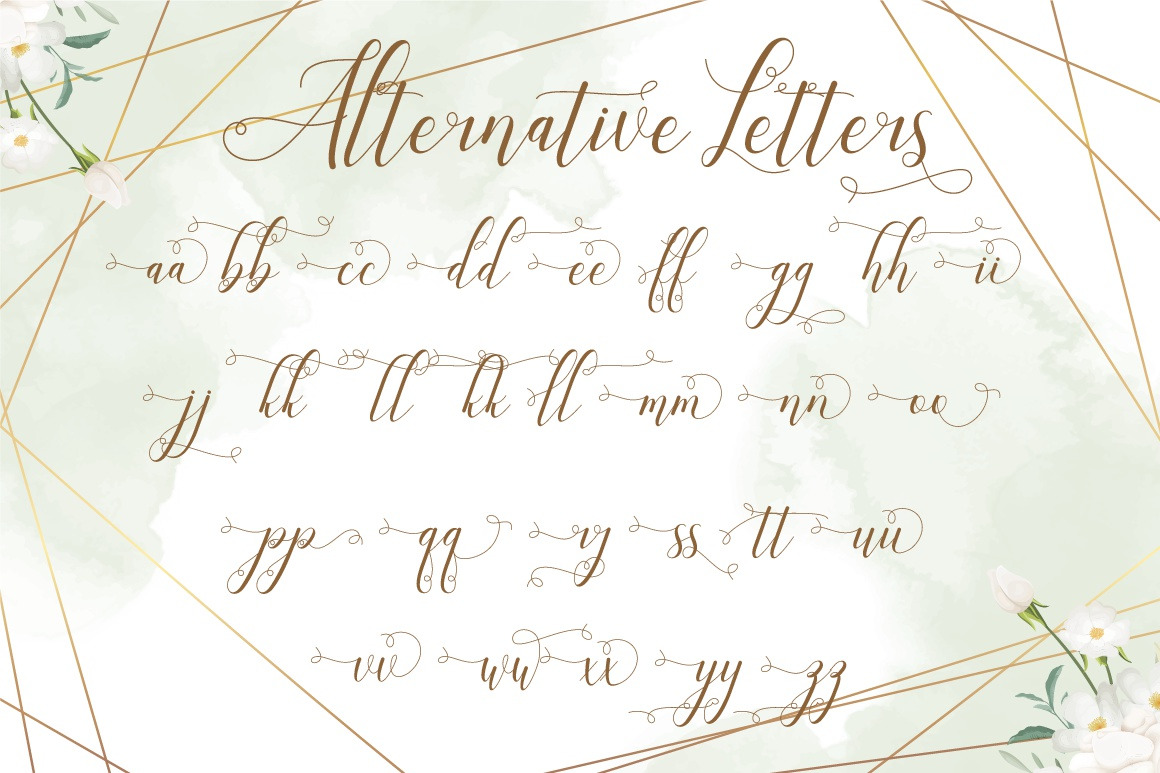 Alternative Letters
aa bb cc dd ee ff gg hh ii
jj kk ll kk ll mm nn oo
pp qq ry ss tt uu
vv ww xx yy zz